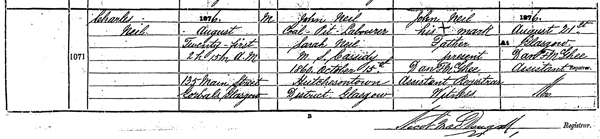 Charles 1876. M John Neil John Neil 1876.
Neil August Coal-Pit Labourer his X mark August 21st
Twenty-first Sarah Neil Father At Glasgow
2h. 15m. A.M. M.S. Cassidy present Danl McGhee
1071 1860. October 15th Danl McGhee Assistant Registrar.
135 Main Street Hutchesontown Assistant Registrar
Gorbals, Glasgow District, Glasgow Witness
B
Registrar.